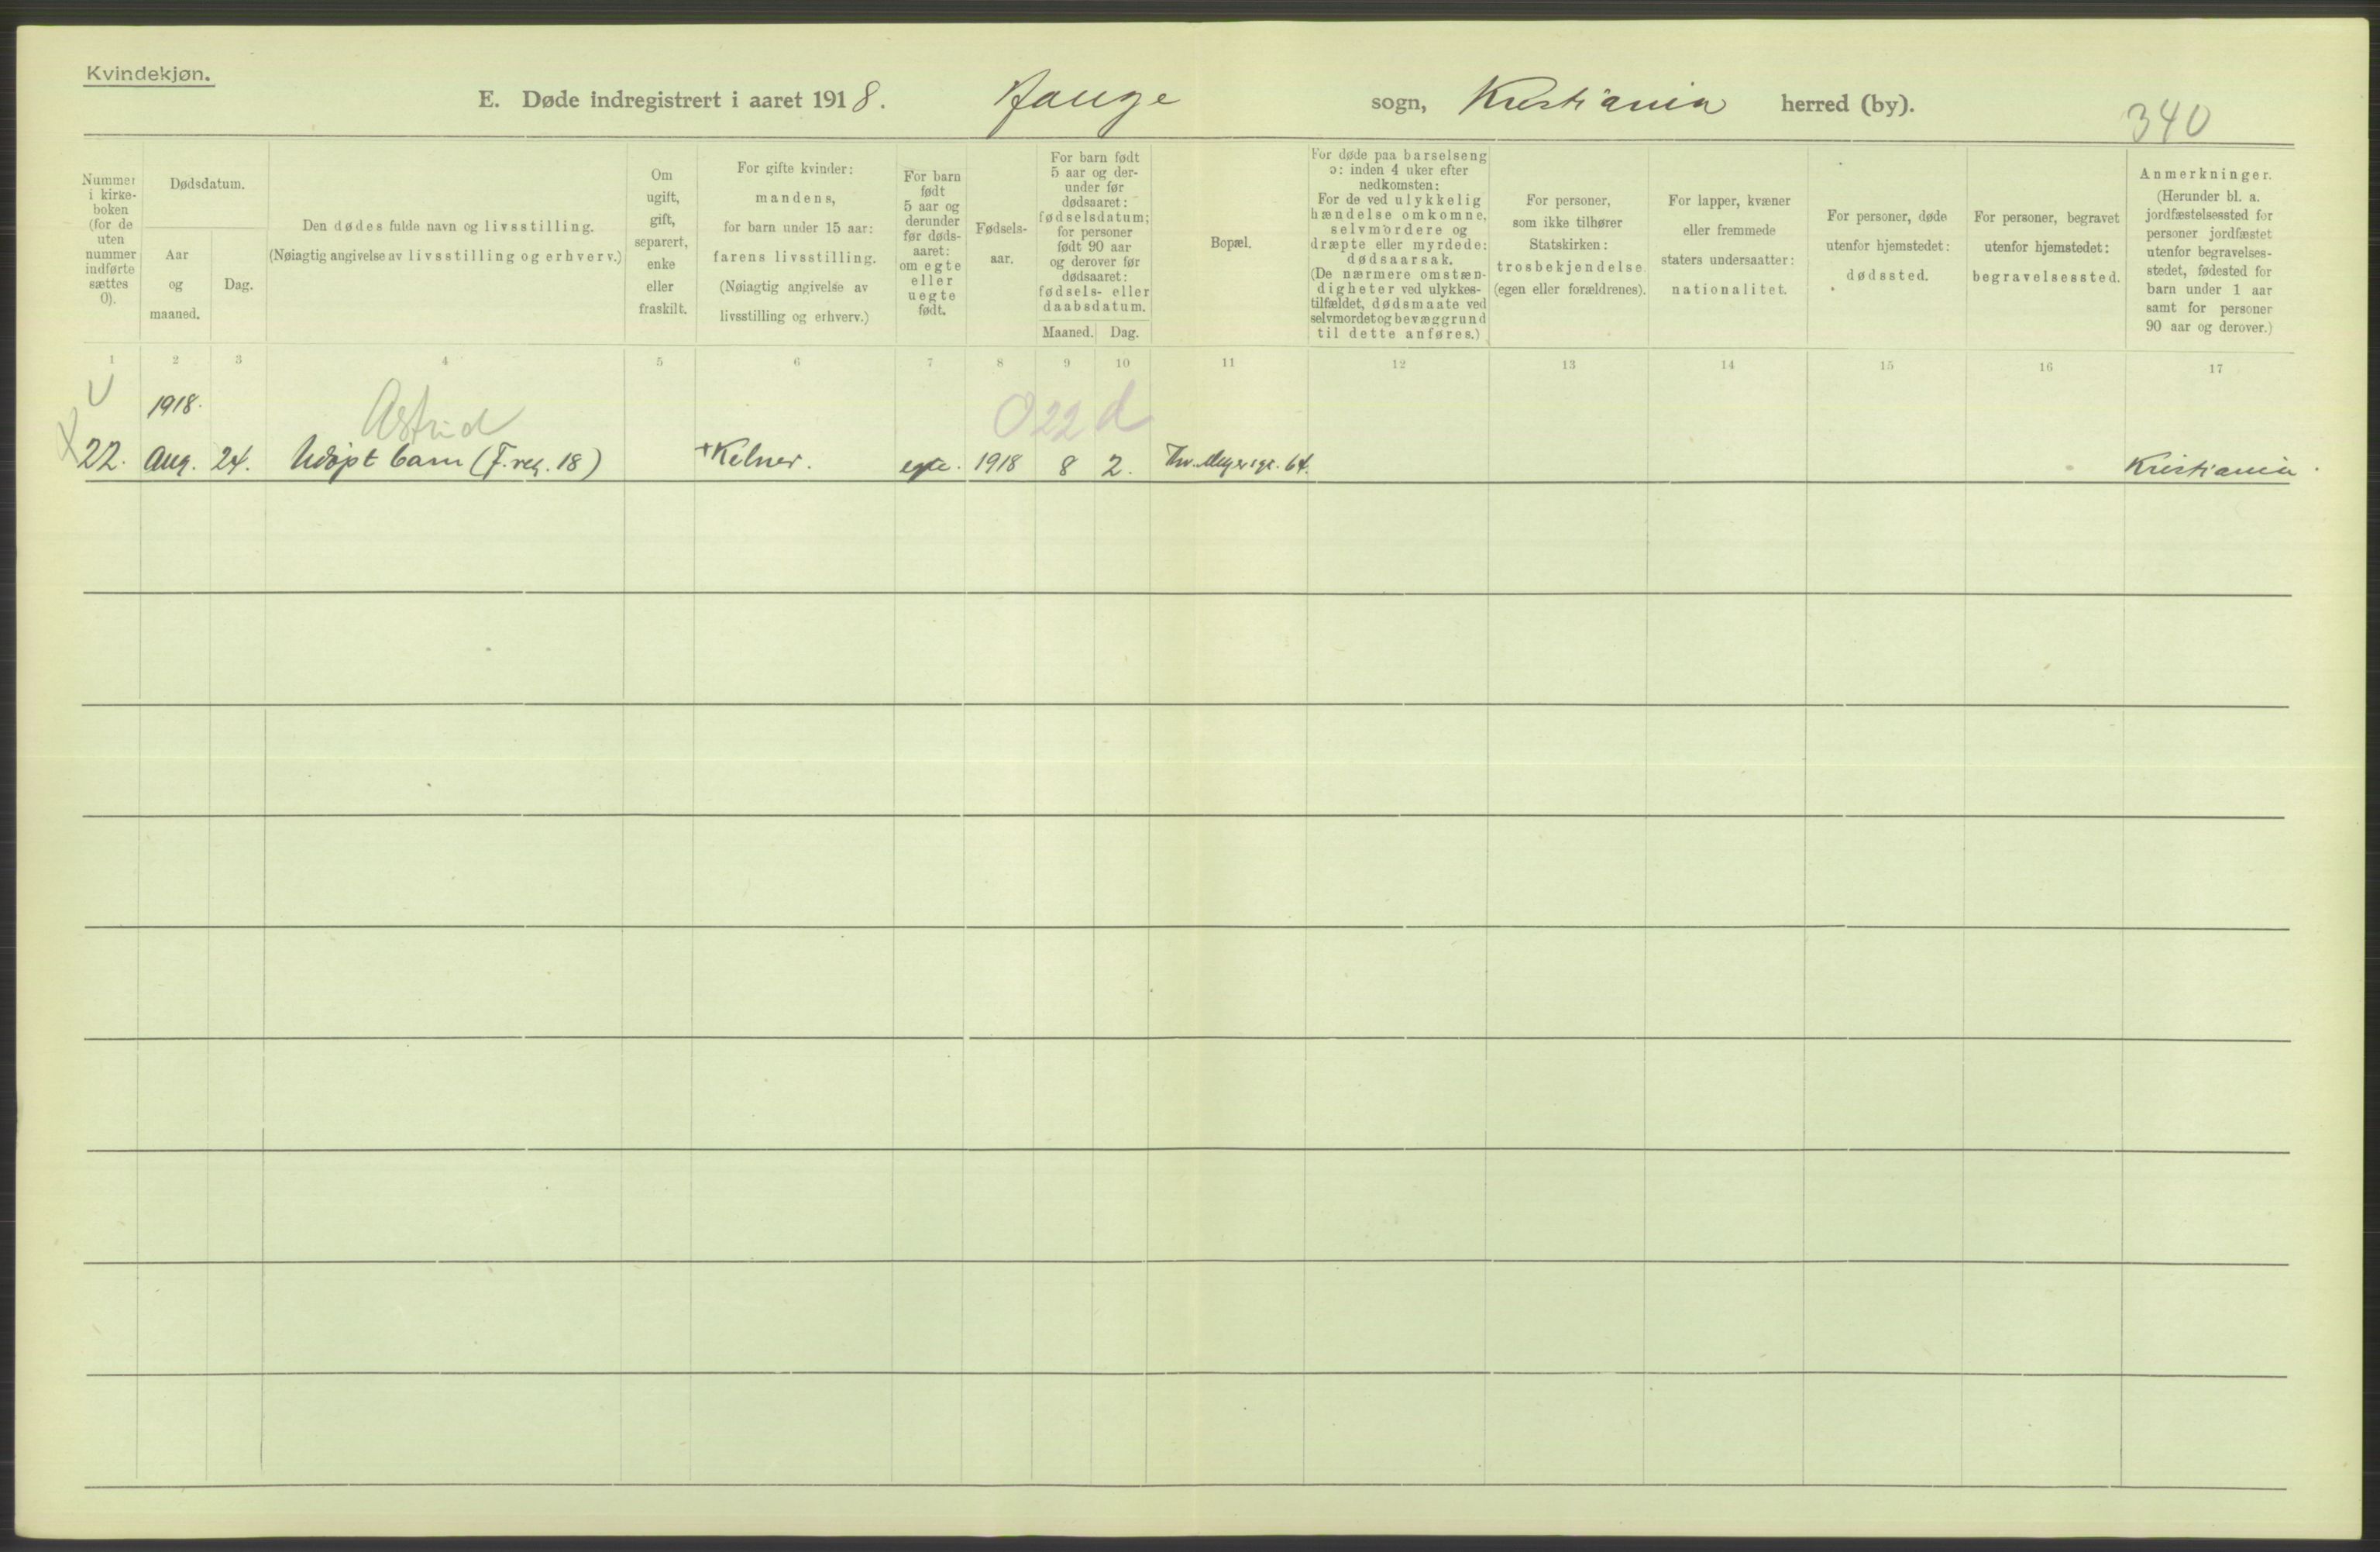 Kvindekjøn.
E. Døde indregistrert i aaret 1918. Hauge sogn, Kristiania herred (by).
340
Nummer
i kirke-
boken
(for de
uten
nummer
indførte
sættes
0).
Dødsdatum.
Aar
og
maaned.
Dag.
Den dødes fulde navn og livsstilling.
(Nøiagtig angivelse av livsstilling og erhverv.)
Om
ugift,
gift,
separert,
enke
eller
fraskilt.
For gifte kvinder:
mandens,
for barn under 15 aar:
farens livsstilling.
(Nøiagtig angivelse av
livsstilling og erhverv.)
For barn
født
5 aar og
derunder
før døds-
aaret:
om egte
eller
uegte
født.
Fødsels-
aar.
For barn født
5 aar og der-
under før
dødsaaret:
fødselsdatum;
for personer
født 90 aar
og derover før
dødsaaret:
fødsels- eller
daabsdatum.
Maaned. Dag.
Bopæl.
For døde paa barselseng
ɔ: inden 4 uker efter
nedkomsten:
For de ved ulykkelig
hændelse omkomne,
selvmordere og
dræpte eller myrdede:
dødsaarsak.
(De nærmere omstæn-
digheter ved ulykkes-
tilfældet, dødsmaate ved
selvmordet og bevæggrund
til dette anføres.)
For personer,
som ikke tilhører
Statskirken:
trosbekjendelse
(egen eller forældrenes).
For lapper, kvæner
eller fremmede
staters undersaatter:
nationalitet.
For personer, døde
utenfor hjemstedet:
dødssted.
For personer, begravet
utenfor hjemstedet:
begravelsessted.
Anmerkninger.
(Herunder bl. a.
jordfæstelsessted for
personer jordfæstet
utenfor begravelses-
stedet, fødested for
barn under 1 aar
samt for personer
90 aar og derover.)
1 2 3 4 5 6 7 8 9 10 11 12 13 14 15 16 17
1918.
Astrid
022 d
22. Aug. 24. Udøpt barn (F. reg. 18) Kelner. egte. 1918 8 2. Thv. Meyersgt. 64. Kristiania.